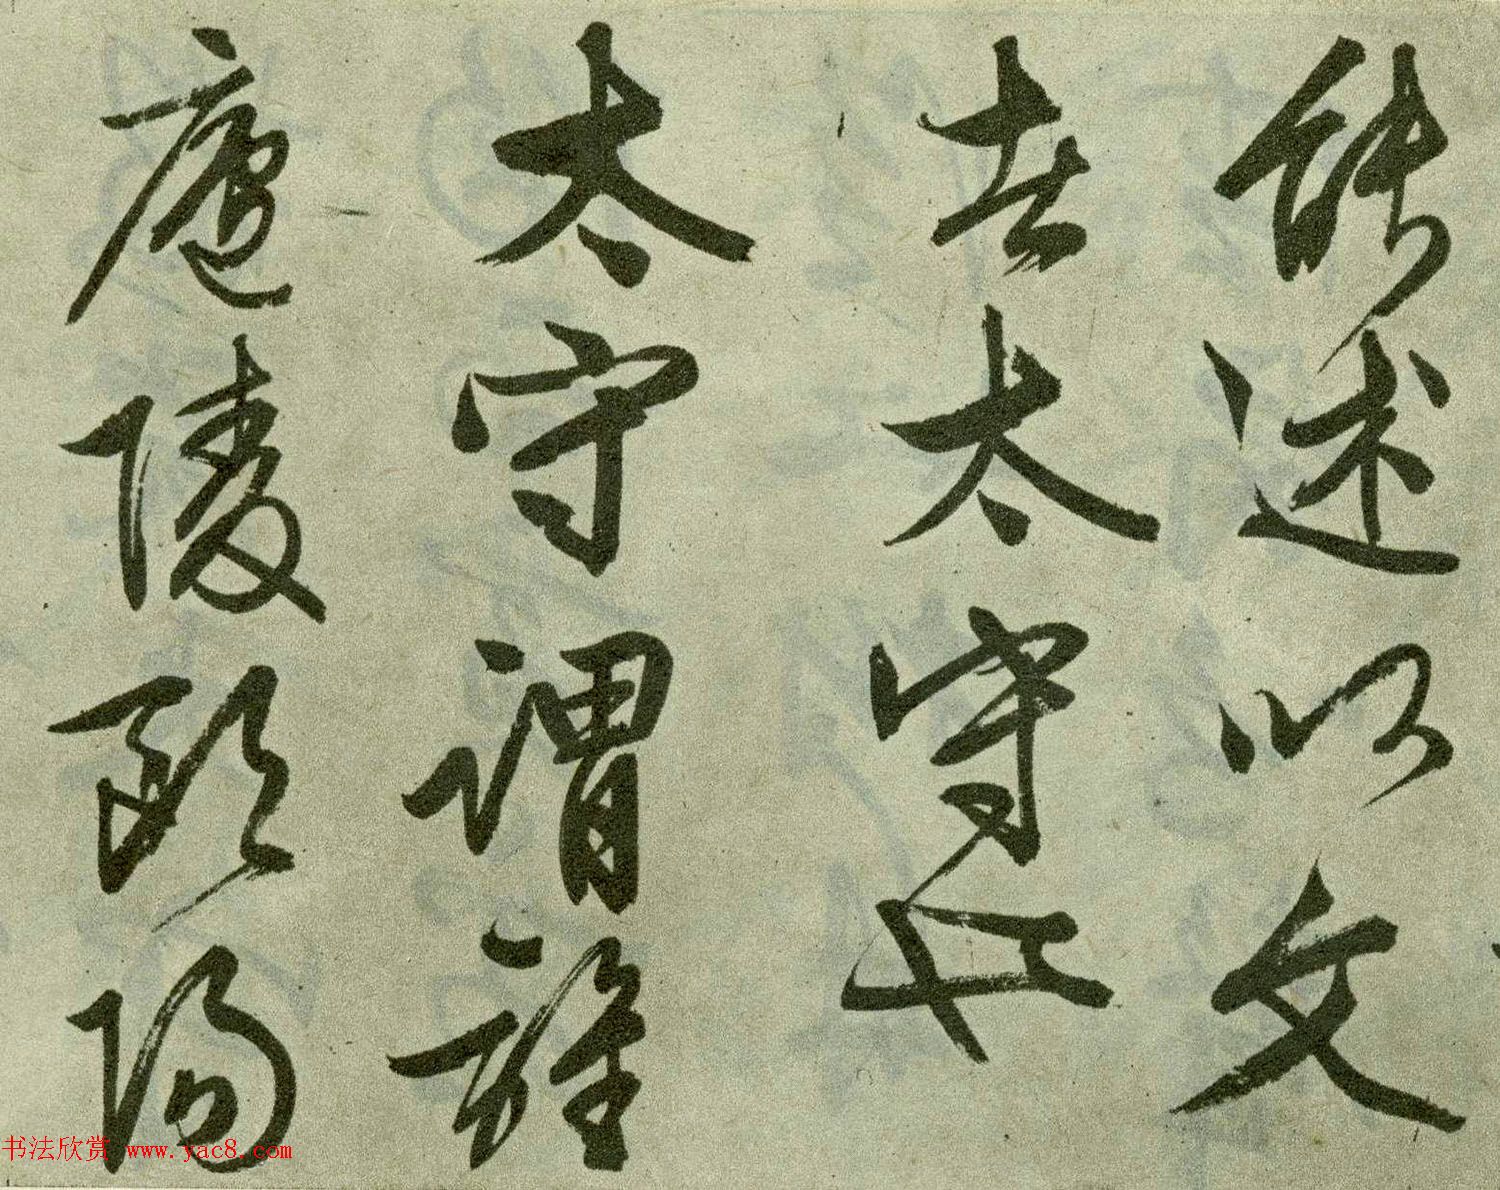 能述以文
者太守也
太守謂誰
廬陵歐陽
书法欣赏 www.yac8.com